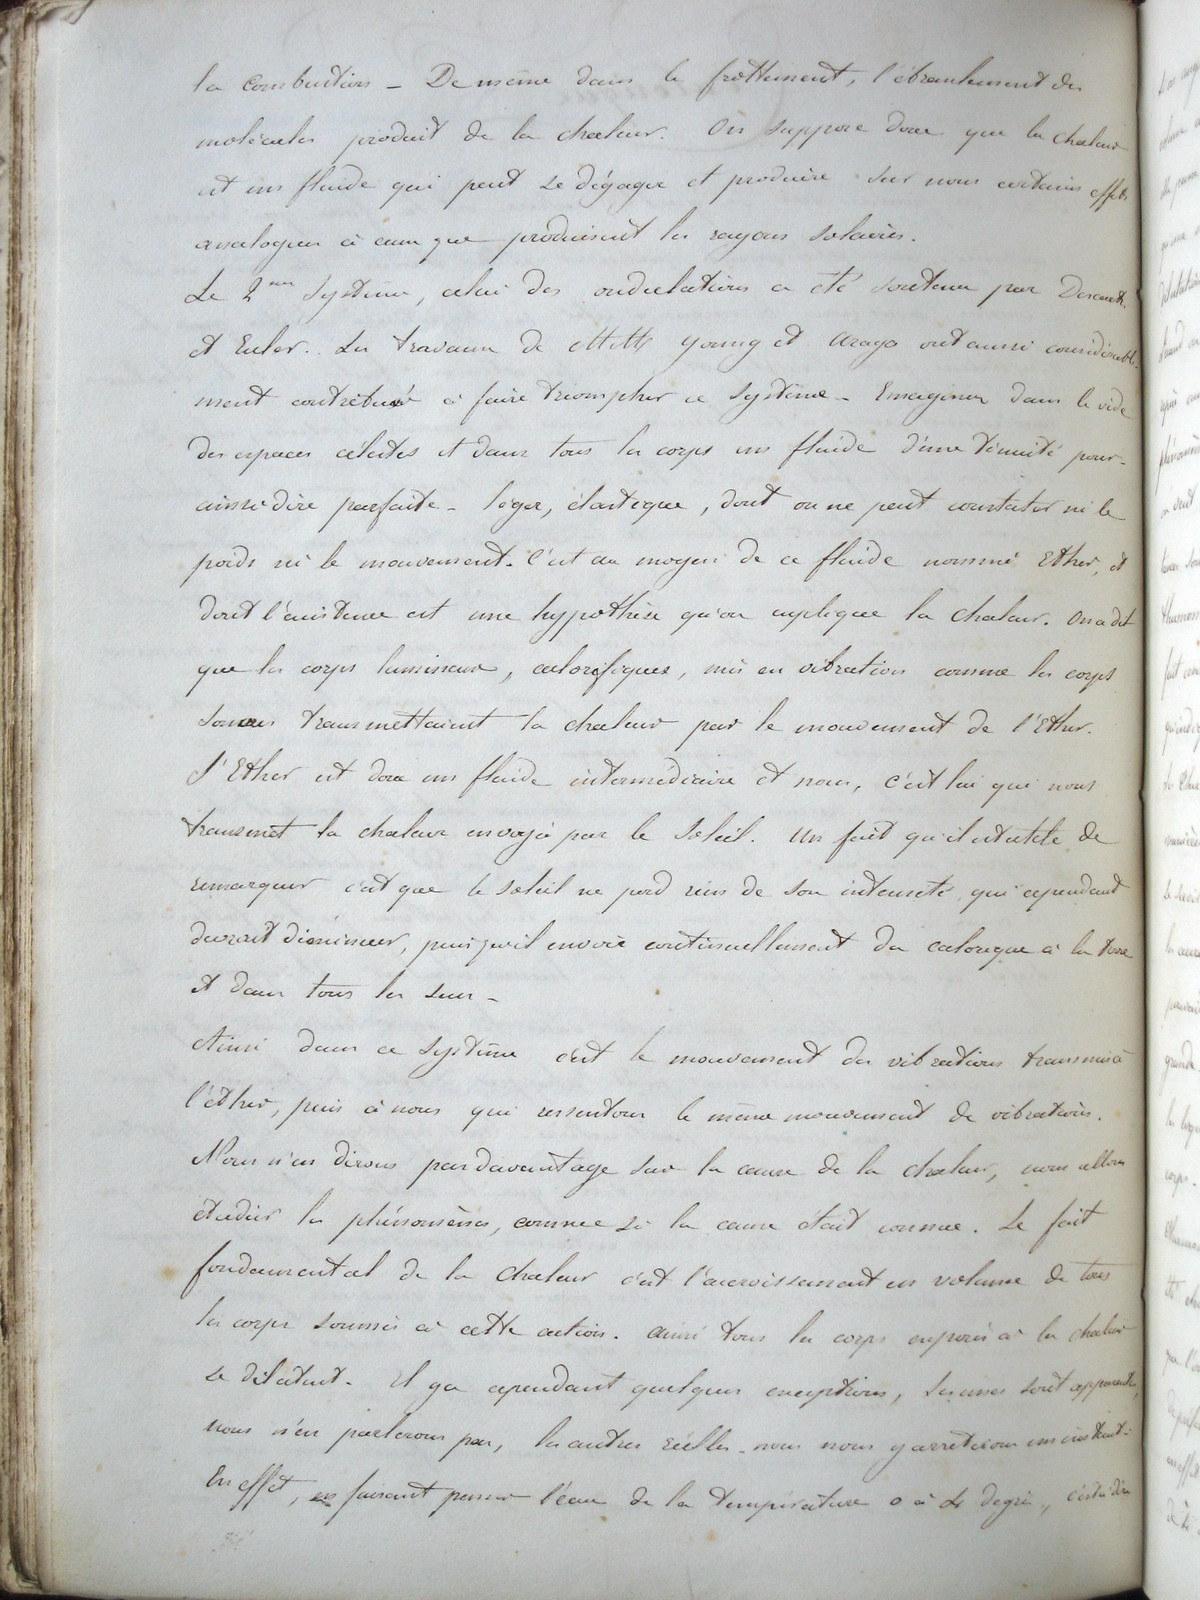 la combustion – De même dans le frottement, l'ébranlement des
molécules produit de la chaleur. On suppose donc que la chaleur
est un fluide qui peut se dégager et produire sur nous certains effets
analogues à ceux que produisent les rayons solaires.
Le 2me système, celui des ondulations a été soutenu par Descartes
et Euler. Les travaux de MM Young et Arago ont aussi considérable-
ment contribué à faire triompher ce système – Imaginez dans le vide
des espaces célestes et dans tous les corps un fluide d'une ténuité pour-
ainsi dire parfaite – léger, élastique, dont on ne peut constater ni le
poids ni le mouvement. C'est au moyen de ce fluide nommé Ether, et
dont l'existence est une hypothèse qu'on explique la chaleur. On a dit
que les corps lumineux, calorifiques, mis en vibration comme les corps
sonores transmettaient la chaleur par le mouvement de l'Ether.
L'Ether est donc un fluide intermédiaire et nous, c'est lui qui nous
transmet la chaleur envoyée par le Soleil. Un fait qu'il est utile de
remarquer c'est que le soleil ne perd rien de son intensité, qui cependant
devrait diminuer, puisqu'il envoie continuellement du calorique à la terre
et dans tous les sens –
Ainsi dans ce système c'est le mouvement des vibrations transmis à
l'éther, puis à nous qui ressentons le même mouvement de vibrations.
Nous n'en dirons pas davantage sur la cause de la chaleur, nous allons
étudier les phénomènes, comme si la cause était connue. Le fait
fondamental de la chaleur c'est l'accroissement en volume de tous
les corps soumis à cette action. Ainsi tous les corps exposés à la chaleur
se dilatent. Il y a cependant quelques exceptions, les unes sont apparentes,
nous n'en parlerons pas, les autres réelles – nous nous y arrêterons un instant.
En effet, en faisant passer l'eau de la température 0 à 4 degrés, c'est à dire